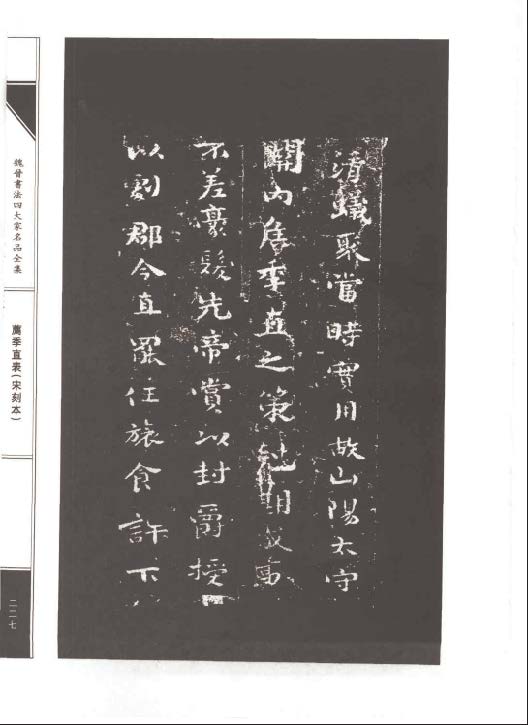 清蟻聚當時實用故山陽太守
關內侯季直之策尅期成事
不差豪髮先帝賞以封爵授
以劇郡今直罷任旅食許下
魏晉書法四大家名品全集
薦季直表(宋刻本)
二二七